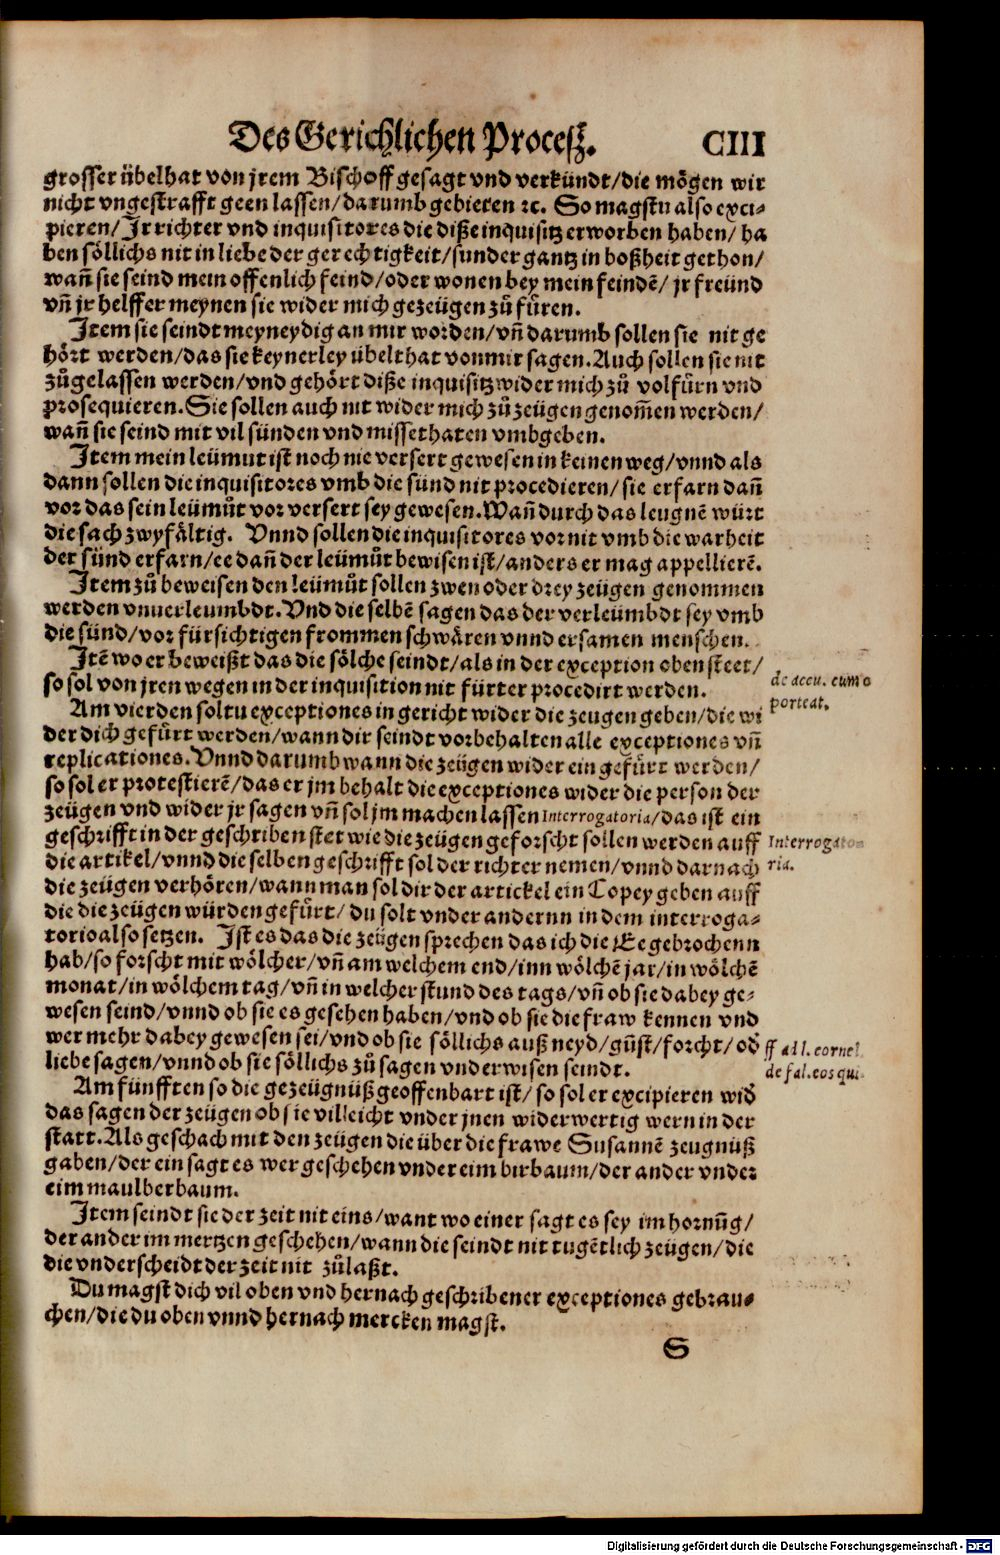 Des Gerichlichen Procesz. CIII
grosser übelhat von jrem Bischoff gesagt vnd verkündt/die mögen wir
nicht vngestrafft geen lassen/darumb gebieten ꝛc. So magstu also exci⸗
pieren/Jr richter vnd inquisitores die diße inquisitz erworben haben/ ha
ben söllichs nit in liebe der gerechtigkeit/sunder gantz in boßheit gethon/
wañ sie seind mein offenlich feind/oder wonen bey mein feindẽ/ jr freünd
vñ jr helffer meynen sie wider mich gezeügen zů füren.
Jtem sie seindt meyneydig an mir worden/vñ darumb sollen sie nit ge
hört werden/das sie keynerley übelthat von mir sagen. Auch sollen sie nit
zůgelassen werden/vnd gehört diße inquisitz wider mich zů volfürn vnd
prosequieren. Sie sollen auch nit wider mich zů zeügen genom̃en werden/
wañ sie seind mit vil sünden vnd missethaten vmbgeben.
Jtem mein leümut ist noch nie versert gewesen in keinen weg/vnnd als
dann sollen die inquisitores vmb die sünd nit procedieren/ sie erfarn dañ
vor das sein leümůt vor versert sey gewesen. Wañ durch das leugnẽ würt
die sach zwyfältig. Vnnd sollen die inquisitores vor nit vmb die warheit
der sünd erfarn/ee dañ der leümůt bewisen ist/anders er mag appellierẽ.
Jtem zů beweisen den leümůt sollen zwen oder drey zeügen genommen
werden vnuerleumbdt. Vnd die selbẽ sagen das der verleümbdt sey vmb
die sünd/vor fürsichtigen frommen schwären vnnd ersamen menschen.
Jtẽ wo er beweißt das die sölche seindt/als in der exception oben steet/
so sol von jren wegen in der inquisition nit fürter procedirt werden.
de accu. cum o
porteat.
Am vierden soltu exceptiones in gericht wider die zeugen geben/die wi
der dich gefürt werden/wann dir seindt vorbehalten alle exceptiones vñ
replicationes. Vnnd darumb wann die zeügen wider ein gefürt werden/
so sol er protestierẽ/das er jm behalt die exceptiones wider die person der
zeügen vnd wider jr sagen vñ sol jm machen lassen Interrogatoria/das ist ein
geschrifft in der geschriben stet wie die zeügen geforscht sollen werden auff
Interrogato⸗
ria.
die artikel/vnnd die selben geschrifft sol der richter nemen/vnnd darnach
die zeügen verhören/wann man sol dir der artickel ein Copey geben auff
die die zeügen würden gefürt/ du solt vnder andernn in dem interroga⸗
torio also setzen. Jst es das die zeügen sprechen das ich die Ee gebrochenn
hab/so forscht mit wölcher/vñ am welchem end/inn wölchẽ jar/in wölchẽ
monat/in wölchem tag/vñ in welcher stund des tags/vñ ob sie dabey ge⸗
wesen seind/vnnd ob sie es gesehen haben/vnd ob sie die fraw kennen vnd
wer mehr dabey gewesen sei/vnd ob sie söllichs auß neyd/gůst/forcht/ od̓
ff ad l. cornel.
de fal. eos qui.
liebe sagen/vnnd ob sie söllichs zů sagen vnderwisen seindt.
Am fünfften so die gezeügnüß geoffenbart ist/ so sol er excipieren wid̓
das sagen der zeügen ob sie villeicht vnder jnen widerwertig wern in der
statt. Als geschach mit den zeügen die über die frawe Susannẽ zeugnüß
gaben/der ein sagt es wer geschehen vnder eim birbaum/der ander vnder
eim maulberbaum.
Jtem seindt sie der zeit nit eins/want wo einer sagt es sey im hornůg/
der ander im mertzen geschehen/wann die seindt nit tugẽtlich zeügen/die
die vnderscheidt der zeit nit zůlaßt.
Du magst dich vil oben vnd hernach geschribener exceptiones gebrau⸗
chen/die du oben vnnd hernach mercken magst.
S
Digitalisierung gefördert durch die Deutsche Forschungsgemeinschaft - DFG